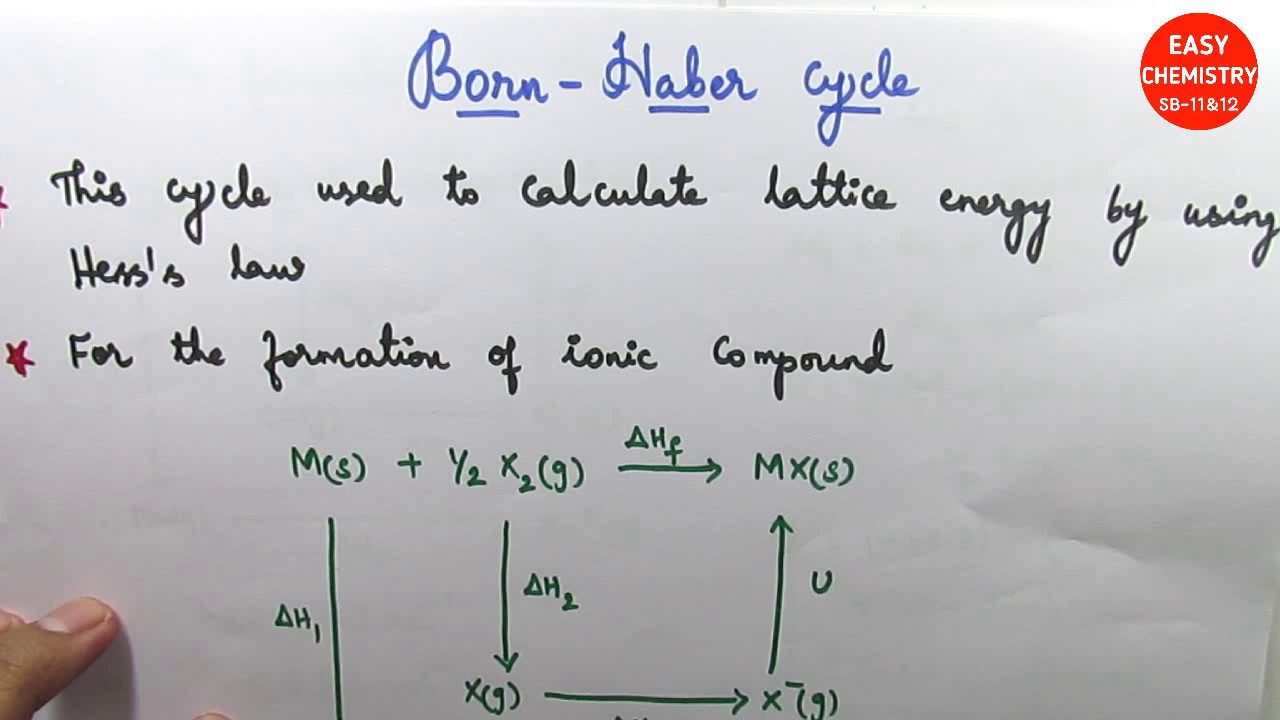 Born-Haber cycle
EASY
CHEMISTRY
SB-11&12
This cycle used to calculate lattice energy by using
Hess's law
★ For the formation of ionic Compound
ΔHf
M(s) + 1/2 X₂(g) → MX(s)
ΔH₁
ΔH₂
U
X(g) → X⁻(g)